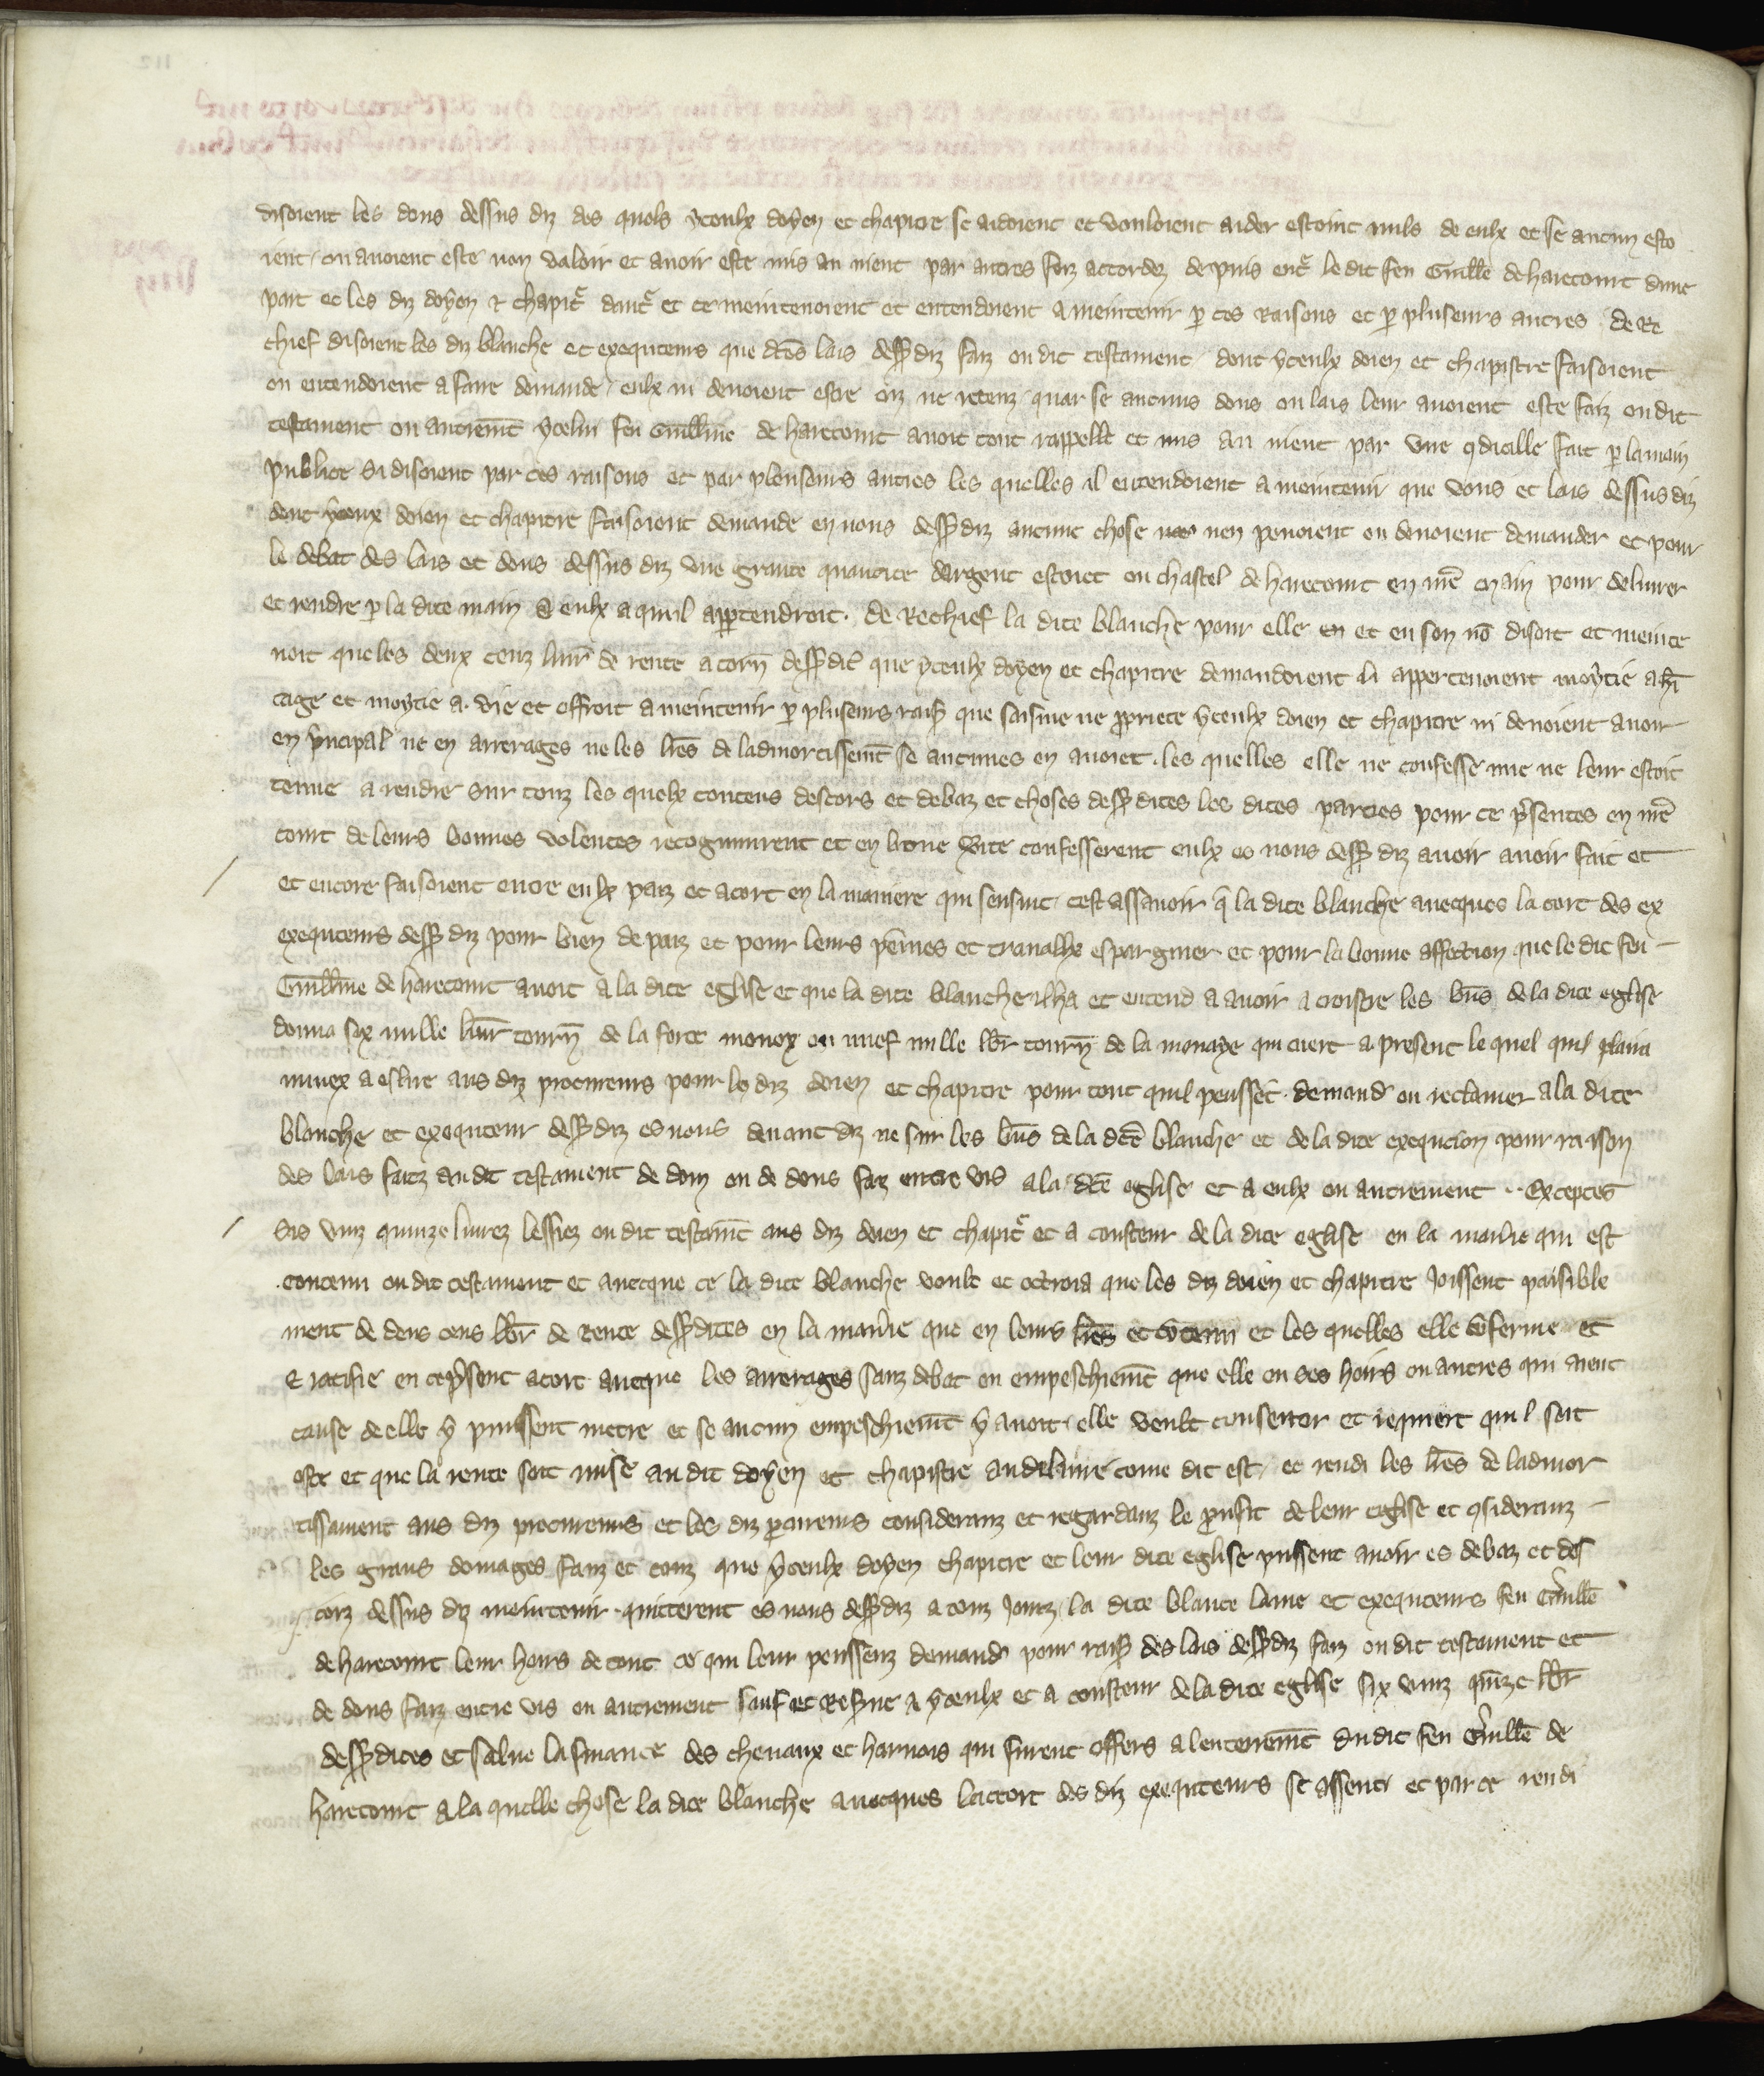 disoient les dons dessus diz des quels yceulx doyen et chapitre se aidoient et vouloient aider estoint nuls de eulx et se aucun esto
ient ou avoient este non valoir et avoir este mis au nient par autres fez accordez de puis entr̃ le dit feu Guill̃e de harecourt dune
part et les diz doyen & chapitr̃ dautr̃ et ce meintenoient et entendoient a meintenir p̱ ces raisons et p̱ pluseurs autres de Re
chief disoient les diz blanche et exequteurs que dc̃es lais dess̃ diz faiz ou dit testament dont yceulx doien et chapistre faisoient
ou entendoient a faire demande eulx ni devoient estre oiz ne recenz quar se aucuns dons ou lais leur avoient este faiz ou dit
testament ou autrem̃t ycelui feu Guillm̃e de harecourt avoit tout rappelle et mis au nient par une q̱dicille fait p̱ la main
publice Si disoient par ces raisons et par pleuseurs autres les quelles il entendoient a meintenir que dons et lais dessus diz
dont yceux doien et chapitre faisoient demande en nons dess̃ diz aucune chose nen pevoient ou devoient demander et pour
le debat des lais et dons dessus diz une grante quantite dargent estoiet ou chastel de harecourt en nr̃e main pour delivrer
et rendre p̱ la dite main a eulx a quil app̱tendroit. de Rechief la dite blanche pour elle en et en son nõ disoit et meinte
noit que les deux cenz livr̃ de rente a torñ dess̃ dic̃ que yceulx doyen et chapitre demandoient li appertenoient moytie a h̃i
tage et moytie a vie et offroit a meintenir p̱ pluseurs rais̃ que saisine ne p̱priete yceulx doien et chapitre ni devoient avoir
en p̃ncipal ne en arrerages ne les lr̃es de ladmortissem̃t se aucunes en avoiet. les quelles elle ne confesse mie ne leur estoit
tenue a rendre sur touz les quelx contens descors et debaz et choses dess̃ dites les dites parties pour ce p̃sentes en nr̃e
court de leurs bonnes volentes recognurent et en bone v̾ite confesserent eulx es nons dess̃ diz avoir avoir fait et
et encore faisoient entre eulx paiz et acort en la maniere qui sensiut cest assavoir q̃ la dite blanche avecques lacort des ex
exequteurs dess̃ diz pour bien de paiz et pour leurs peines et travalhx espargnier et pour la bonne affection que le dit feu
Guillm̃e de harecourt avoit a la dite eglise et que la dite blanche ilha et entend a avoir a croistre les bñs de la dite eglise
donna six mille livr̃ tourñ de la forte monoy ou nuef mille lbr̃ tourñ de la monaye qui cuert a present le quel quil plaira
miuex a eslire aus diz procureurs pour le diz doien et chapitre pour tout quil peussẽt demand̾ ou reclamer a la dite
blanche et exequteur dess̃ diz es nons devant diz ne sur les bñs de la dc̃e blanche et de la dite exequcion pour raison
des lais faitz au dit testament de dom ou de dons faz entre vis a la dc̃e eglise et a eulx ou autrement .. Exceptes
sis vinz quinze livrez lessiez ou dit testam̃t aus diz doien et chapitr̃ et a cousteur de la dite eglise en la mañie qui est
contenu ou dit testament et avecque ce la dite blanche voult et octroia que les diz doien et chapitre joissent paisible
ment de deus cens lbr̃ de Rente dess̃ dites en la mañie que en leurs lr̃es et c̃tenu et les quelles elle c̃ferme et
& ratifie en cep̃sent acort avecque les arrerages sanz debat ou empeschiem̃t que elle ou ses hoirs ou autres qui aient
cause de elle y puissent metre et se aucun empeschiem̃t y avoit elle voult consentor et requiert quil soit
oste et que la rente soit mise au dit doyen et chapistre au delivire come dit est, et rendi les lr̃es de ladmor
tissament aus diz procureurs et les diz p̱cureurs consideranz et regardanz le p̱oufit de leur eglise et q̱sideranz
les grans domages faiz et touz que yceulx doyen chapitre et leur dite eglise pussent avoir es debaz et des
corz dessus diz meintenir quitterent es nons dess̃ diz a touz jourz la dite blance lame et exequteurs feu Guill̃e
de harecourt leur hoirs de tout ce qui leur peussenz demand̾ pour rais̃ des lais dess̃ diz faiz ou dit testament et
de dons faiz entre vis ou autrement sauf et res̾ve a yceulx et a cousteur de la dite eglise six vinz quinze lbr̃
dess̃ dites et salve la finance des chevaux et harnois qui furent offers a lenterrem̃t du dit feu Guill̃e de
harecourt a la quelle chose la dite blanche avecques lacort des diz exequteurs se assenti et par ce rendi